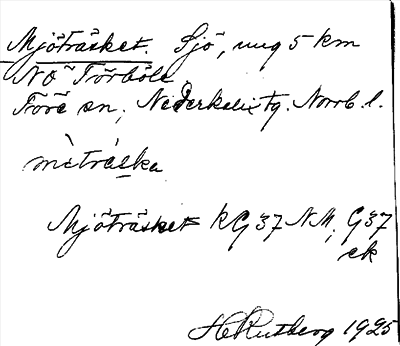 Mjöträsket. Sjö, ung 5 km
NO Törböle
Töre sn, Nederkalix tg. Norrb. l.
mètráska
Mjöträsket kG37 NM; G37
ek
H Rutberg 1925